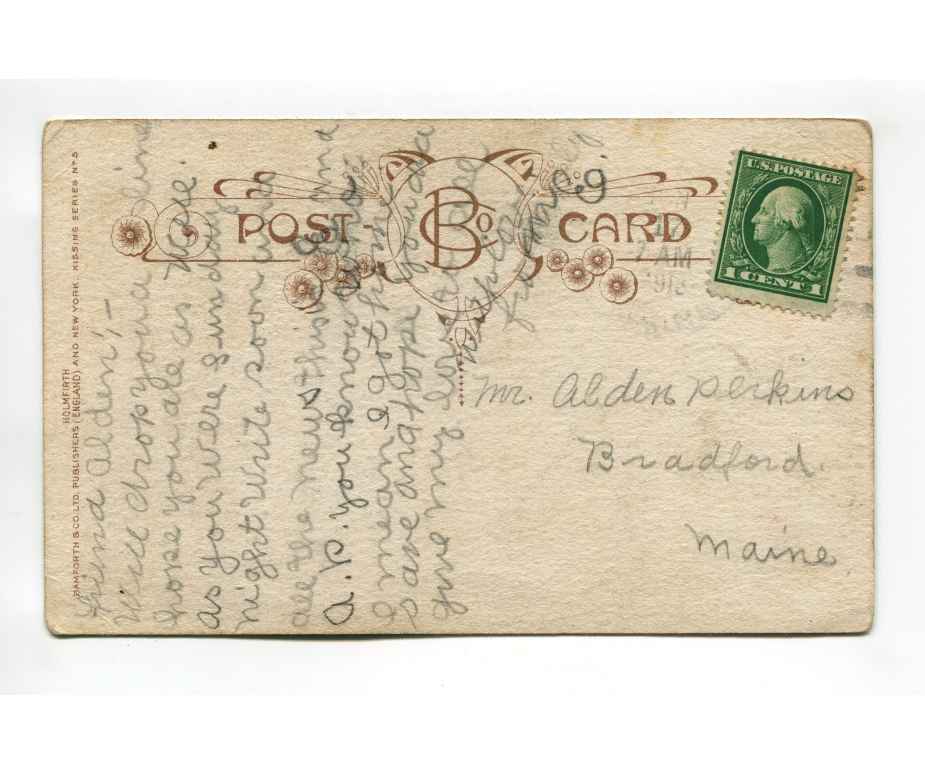 HOLMFIRTH
BAMFORTH & CO. LTD. PUBLISHERS (ENGLAND) AND NEW YORK KISSING SERIES Nº 5
POST CARD
B Co.
U.S. POSTAGE
1 CENT 1
7 AM
191
Mr. Alden Perkins
Bradford.
Maine
Friend Alden:-
Will drop you a line
hope you ale as
as you were Sunday
night write soon with
all the news this
A.P. you know who
I mean I got home
save and hope you
give my love to
from